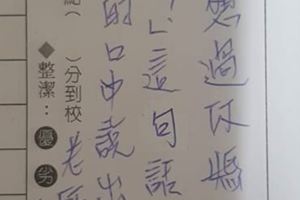 應過你媽
？」這句話
的口中說出
老師
）分到校
◆整潔：優劣